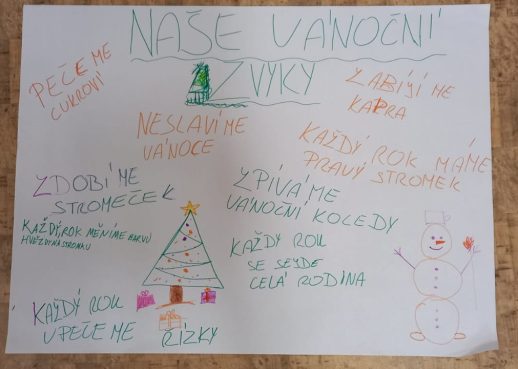 NAŠE VÁNOČNÍ
ZVYKY
PEČEME
CUKROVÍ
ZABÍJÍME
KAPRA
NESLAVÍME
VÁNOCE
KAŽDÝ ROK MÁME
PRAVÝ STROMEK
ZDOBÍME
STROMEČEK
ZPÍVÁME
VÁNOČNÍ KOLEDY
KAŽDÝ ROK MĚNÍME BARVU
HVĚZDY NA STROMKU
KAŽDÝ ROK
SE SEJDE
CELÁ RODINA
KAŽDÝ ROK
UPEČEME ŘÍZKY